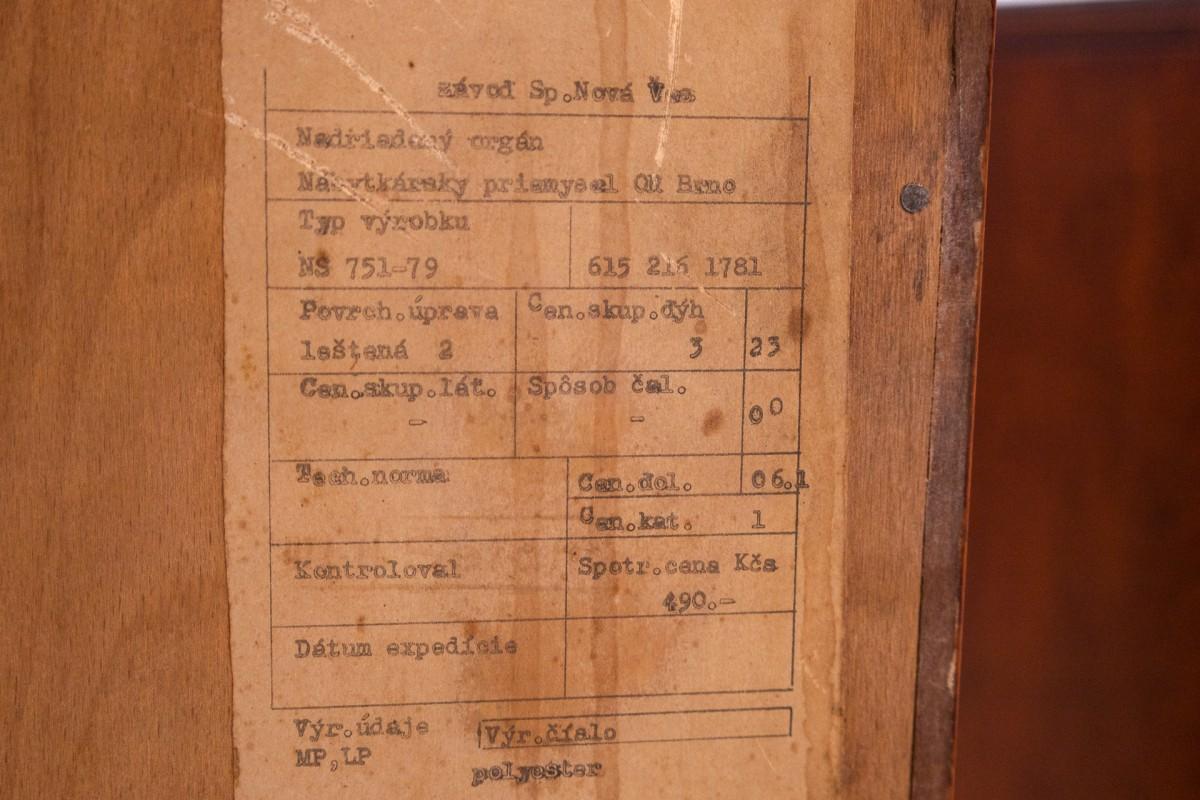 závod Sp.Nová Ves
Nadriadený orgán
Nábytkársky priemysel OÚ Brno
Typ výrobku
NS 751-79 615 216 1781
Povrch.úprava Cen.skup.dýh
leštená 2 3 23
Cen.skup.lát. Spôsob čal.
- - 00
Tech.norma Cen.dol. 06.1
Cen.kat. 1
Kontroloval Spotr.cena Kčs
490.-
Dátum expedície
Výr.údaje Výr.číslo
MP,LP polyester